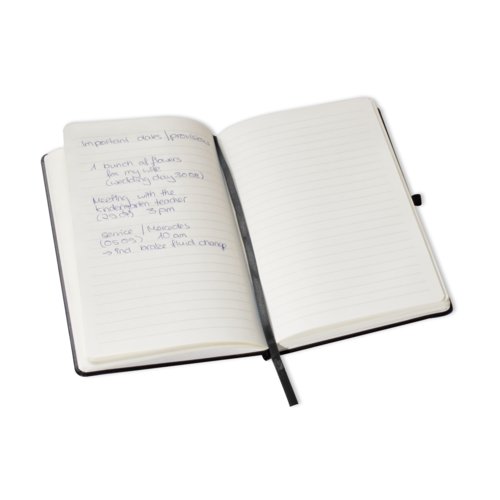 Important dates / provisions
1 bunch of flowers
for my wife
(wedding day 30.08)
Meeting with the
kindergarten teacher
(29.08) 3 pm
service / Mercedes
(05.09) 10 am
→ incl. brake fluid change